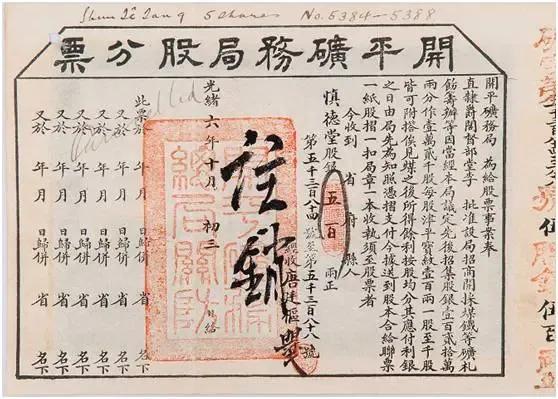 Shun Tê Tang 5 Shares No. 5384—5388
開平礦務局股分票
開平礦務局 為給股票事案奉
直隸爵閣督部堂李 批准設局招商開採煤鐵等礦札
飭籌辦等因當經本局議定先後招集股銀壹百貳拾萬
兩分作壹萬貳千股每股津平寶紋壹百兩一股至千股
皆可附搭俟見煤之後所得餘利按股均分其應付利銀
之日由局先為知照憑摺支付今據送到股本合給聯票
一紙股摺一扣局章一本收執須至股票者
今收到 省 府 縣人
慎德堂股銀 五百 兩正
第五千三百八十四號至第五千三百八十八號
經收唐廷樞
註銷
光緒六年十月 初三 日給
Cancelled
此票於 年 月 日歸併 省 名下
又於 年 月 日歸併 省 名下
又於 年 月 日歸併 省 名下
又於 年 月 日歸併 省 名下
又於 年 月 日歸併 省 名下
又於 年 月 日歸併 省 名下